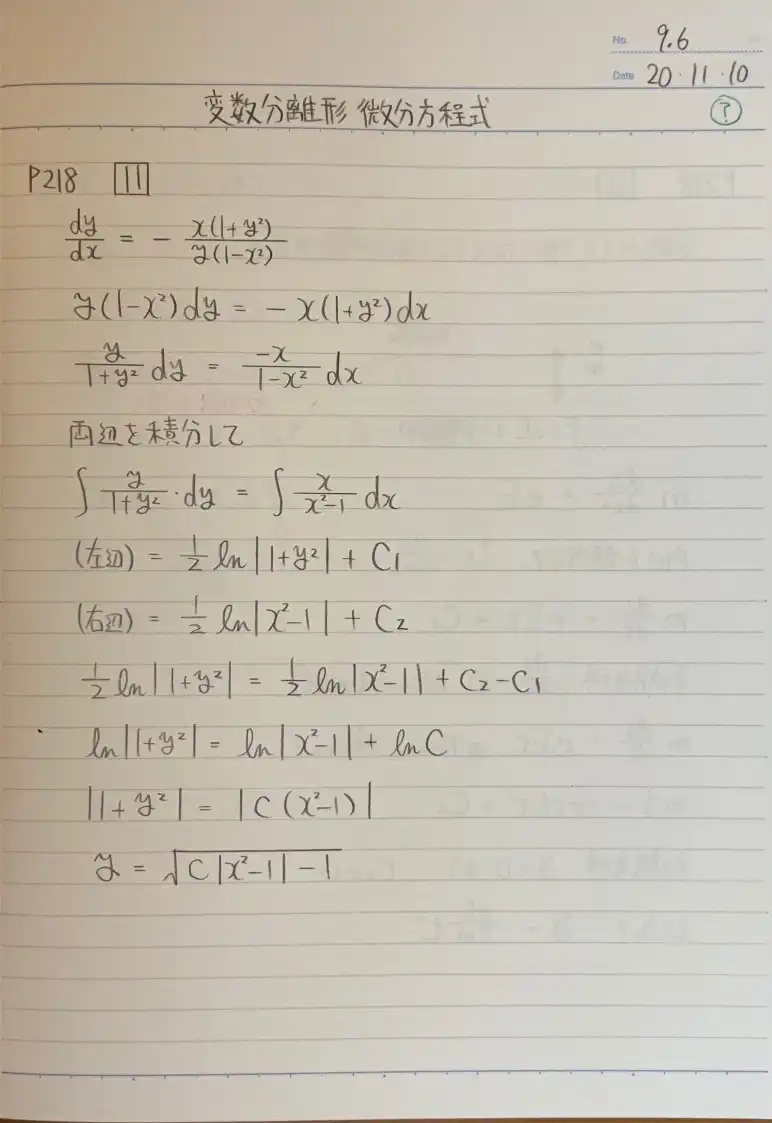 No. 9.6
Date 20・11・10
変数分離形 微分方程式 ⑦
P218 11
dy/dx = - x(1+y²)/y(1-x²)
y(1-x²)dy = -x(1+y²)dx
y/1+y² dy = -x/1-x² dx
両辺を積分して
∫ y/1+y² ・dy = ∫ x/x²-1 dx
(左辺) = 1/2 ln|1+y²| + C₁
(右辺) = 1/2 ln|x²-1| + C₂
1/2 ln|1+y²| = 1/2 ln|x²-1| + C₂-C₁
ln|1+y²| = ln|x²-1| + lnC
|1+y²| = |C(x²-1)|
y = √C|x²-1|-1